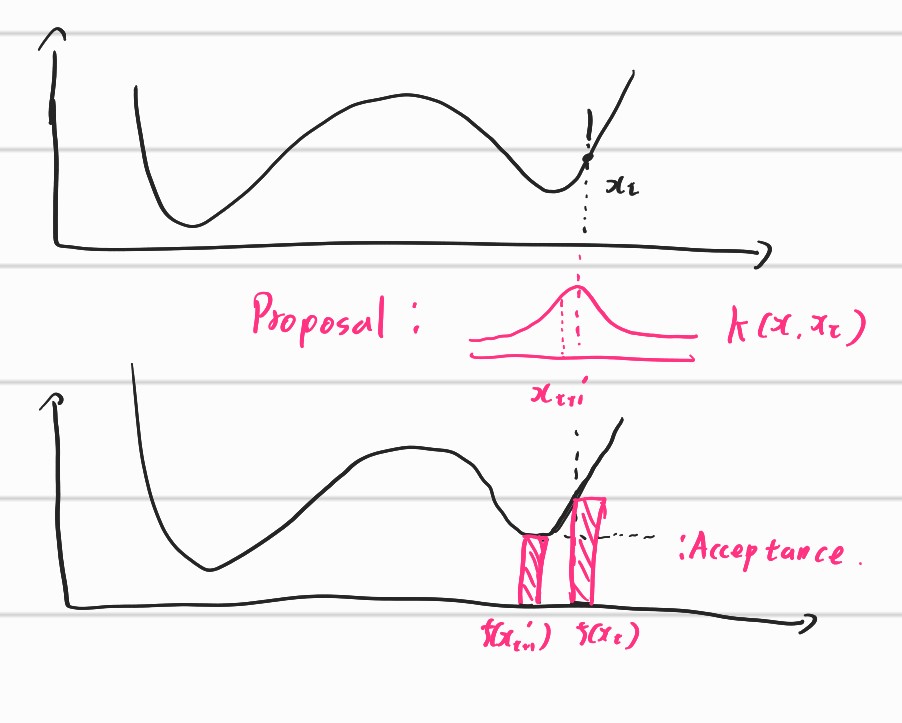 xₜ
Proposal : k(x, xₜ)
xₜ₊₁'
: Acceptance.
f(xₜ₊₁') f(xₜ)